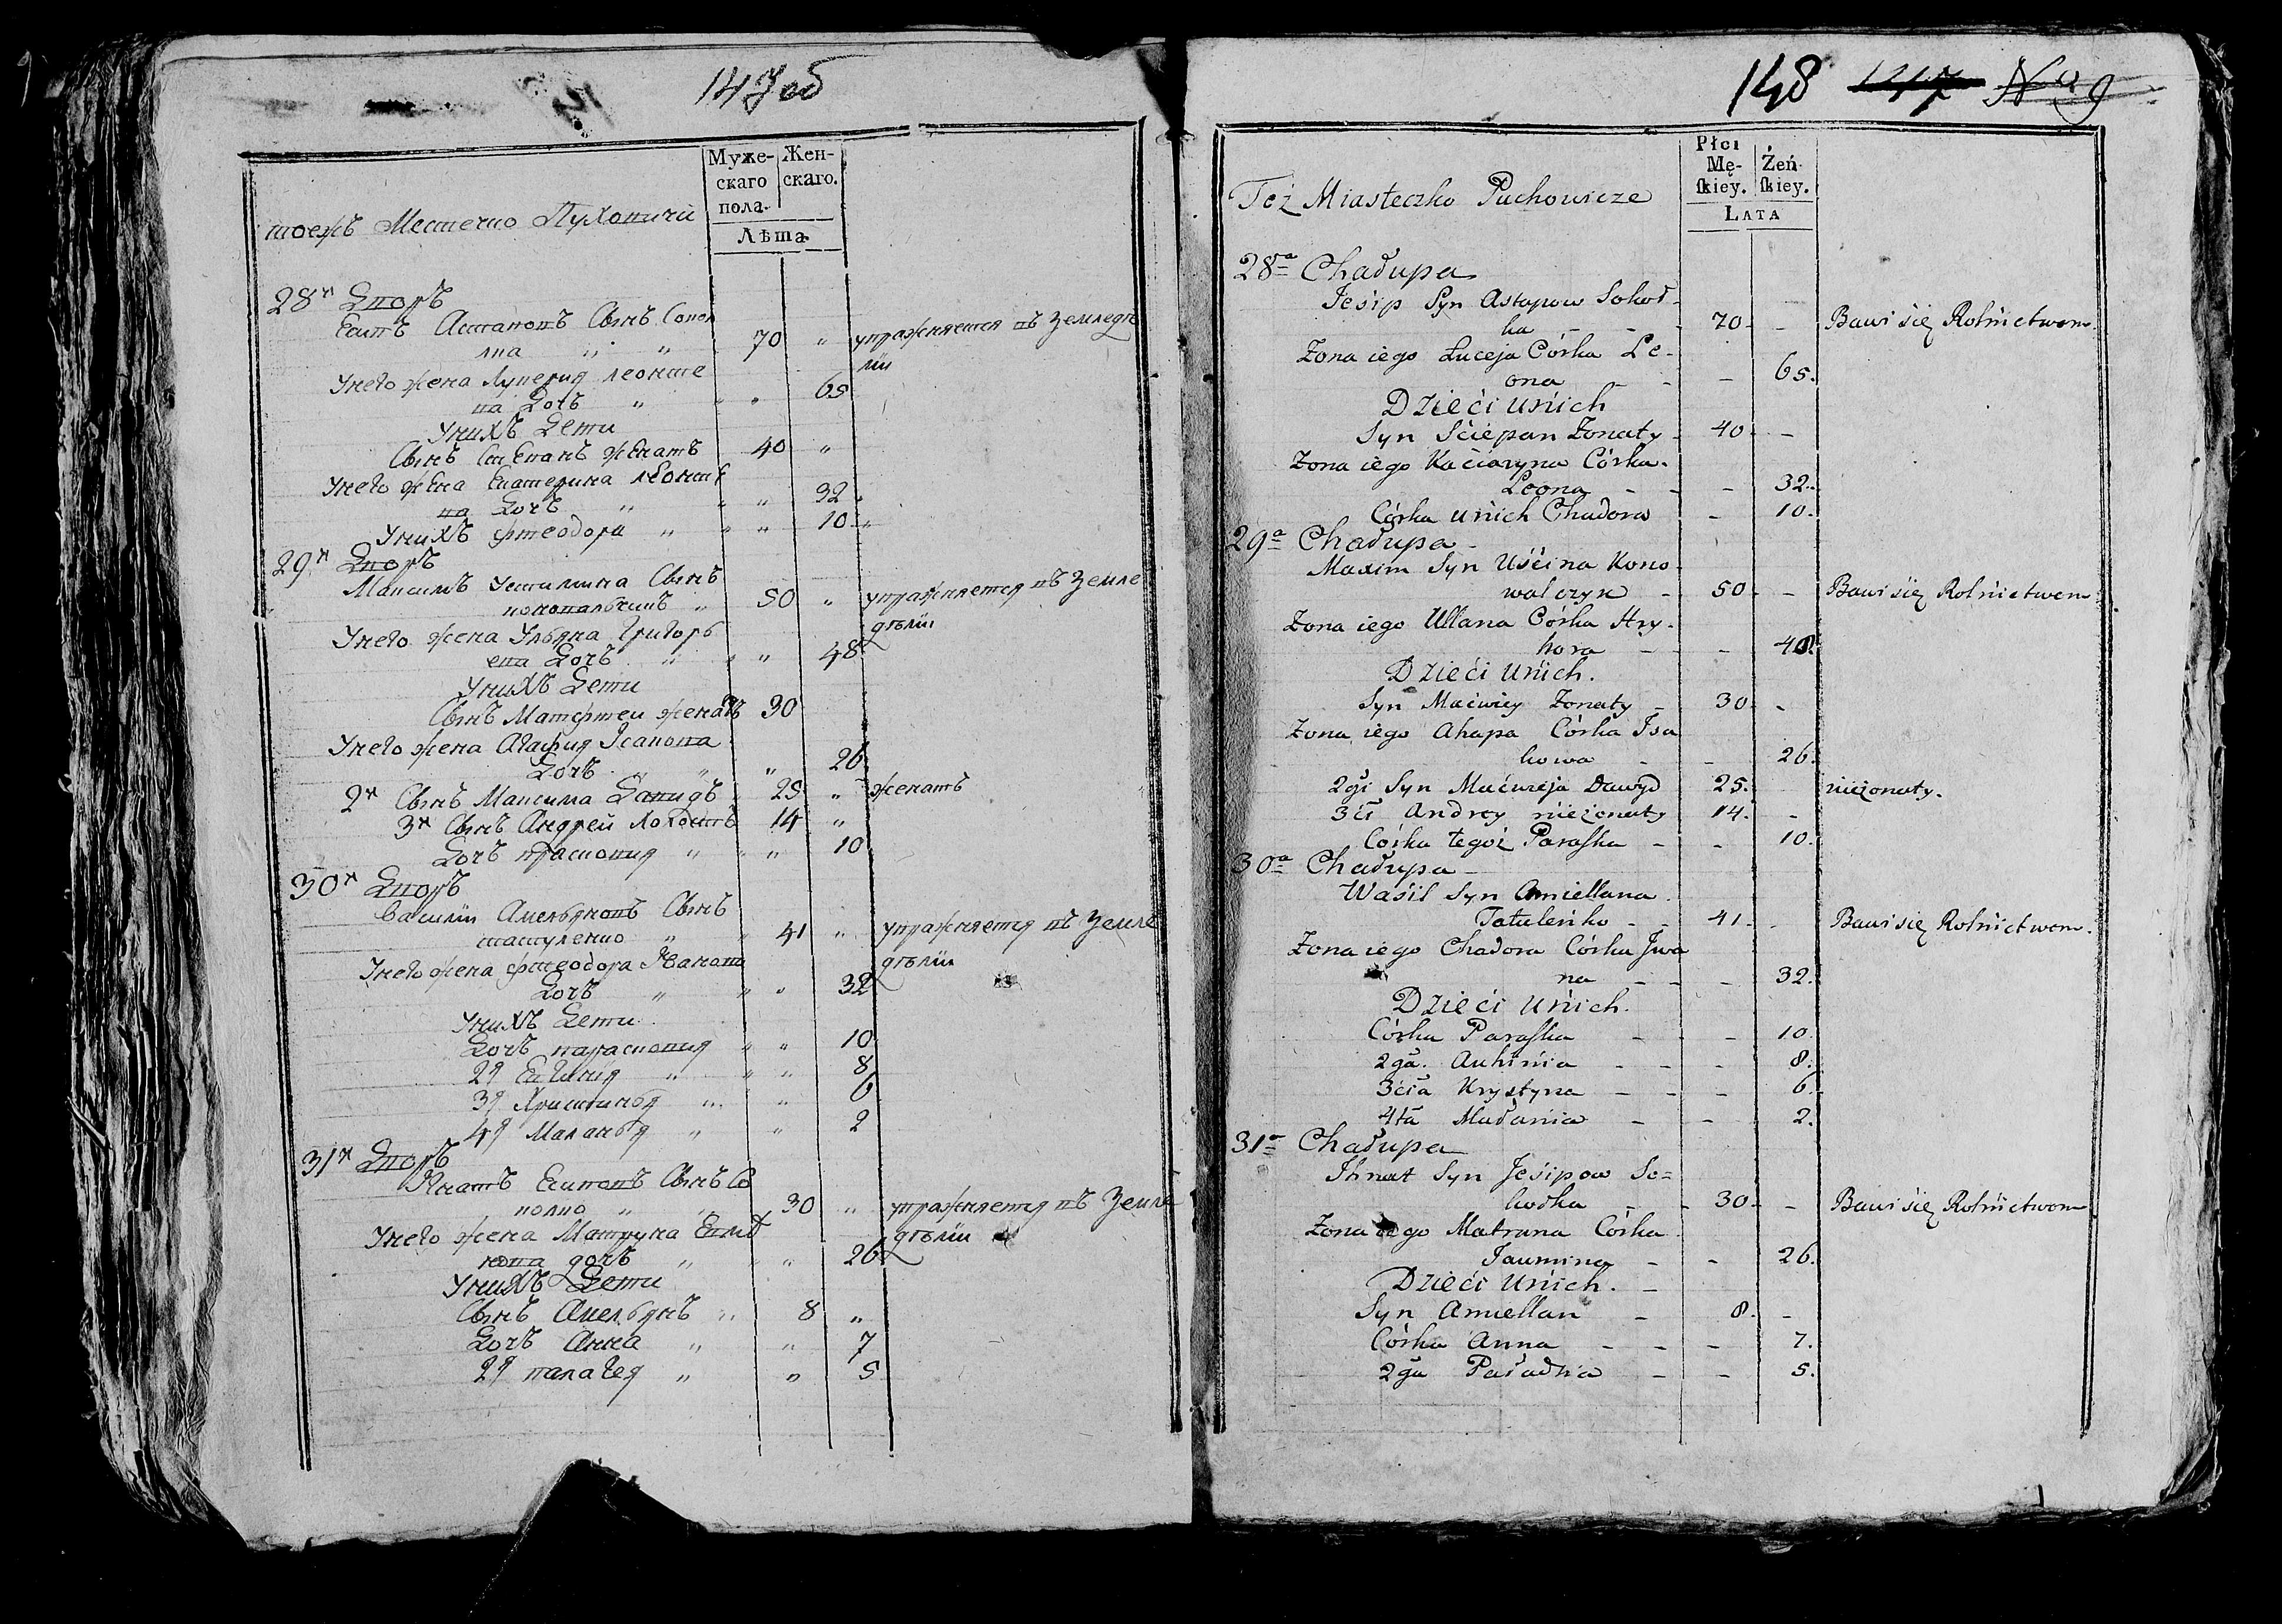 147об
Муже- Жен-
скаго скаго.
пола.
Лѣта
тоежъ Местечко Пуховичи
28й Дворъ
Есипъ Астаповъ Сынъ Сокол
ка " " 70 " упражняется въ Земледѣ
лiи
Унего жена Лукерия леонте
ва Дочь " " " 65
Унихъ Дети
Сынъ Степанъ женатъ 40 "
Унего жена Екатерина леонте
ва Дочь " " " 32
Унихъ фтеодора " " " 10
29й Дворъ
Максимъ Устимика Сынъ
коновальчикъ " 50 " упражняется въ Земле
дѣлiи
Унего жена Ульяна Григорь
ева Дочь " " " 48
Унихъ Дети
Сынъ Матфтеи женатъ 30
Унего жена Агафия Исакова
Дочь " " " 26
2й Сынъ Максима Давидъ 25 " женатъ
3й Сынъ Андрей Холостъ 14 "
Дочь прасковия " " " 10
30й Дворъ
Василiи Амельяновъ Сынъ
татуленко " " 41 " упражняется въ Земле
дѣлiи
Унего жена фтеодора Иванова
Дочь " " " 32
Унихъ Дети
Дочь парасковия " " 10
2я Евгиния " " " 8
3я Христинья " " 6
4я Маланья " " 2
31й Дворъ
Игнатъ Есиповъ Сынъ Со
колко " " 30 " упражняется въ Земле
дѣлiи
Унего жена Матруна
дочь " " " 26
Унихъ Дети
Сынъ Амельянъ " 8 "
Дочь Анна " " 7
2я палагея " " 5
148 147 No 9
Płci
Mę- Żeń-
ſkiey. ſkiey.
LATA
Też Miasteczko Puchowicze
28a Chałupa
Jesip Syn Astapow Sokoł-
ka - - - 70 - Bawi się Rolnictwem
Zona iego Łuceja Córka Le-
ona - - - 65.
Dzieci u nich
Syn Sciepan Zonaty - 40 - -
Zona iego Kaciaryna Córka
Leona - - - 32.
Córka u nich Chadora - 10.
29a Chałupa -
Maxim Syn Uścina Kono
walczyk - 50 - - Bawi się Rolnictwem
Zona iego Ullana Córka Hry-
hora - - - 48.
Dzieci u nich.
Syn Maćwiey Zonaty - 30 - -
Zona iego Ahapa Córka Isa
kowa - - 26.
2gi Syn Maćwieja Dawyd 25. nieżonaty.
3ci Andrey nieżonaty 14. -
Córka tegoż Paraſka - - 10.
30a Chałupa -
Wasil Syn Amiellana
Tatuleńko - - 41 - - Bawi się Rolnictwem.
Zona iego Chadora Córka Iwa
na - - - 32.
Dzieci u nich.
Córka Paraſka - - - 10.
2ga. Auhinia - - - 8.
3cia Krystyna - - - 6.
4ta Małania - - 2.
31a Chałupa
Ihnat Syn Jesipow So=
kołka - 30 - - Bawi się Rolnictwem
Zona iego Matruna Córka
Jaumina - - 26.
Dzieci u nich. -
Syn Amiellan - 8. -
Córka Anna - - - 7.
2ga Pałaohia - - 5.